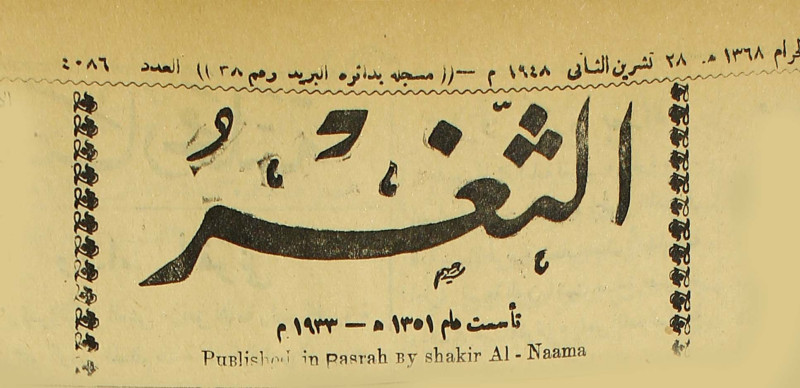 حرام ١٣٦٨ هـ. ٢٨ تشرين الثاني ١٩٤٨ م —(( مسجله بدائره البريد رقم ٣٨ )) العدد ٤٠٨٦
الثغر
تأسست عام ١٣٥١ ه — ١٩٣٣ م
Published in Basrah By shakir Al - Naama